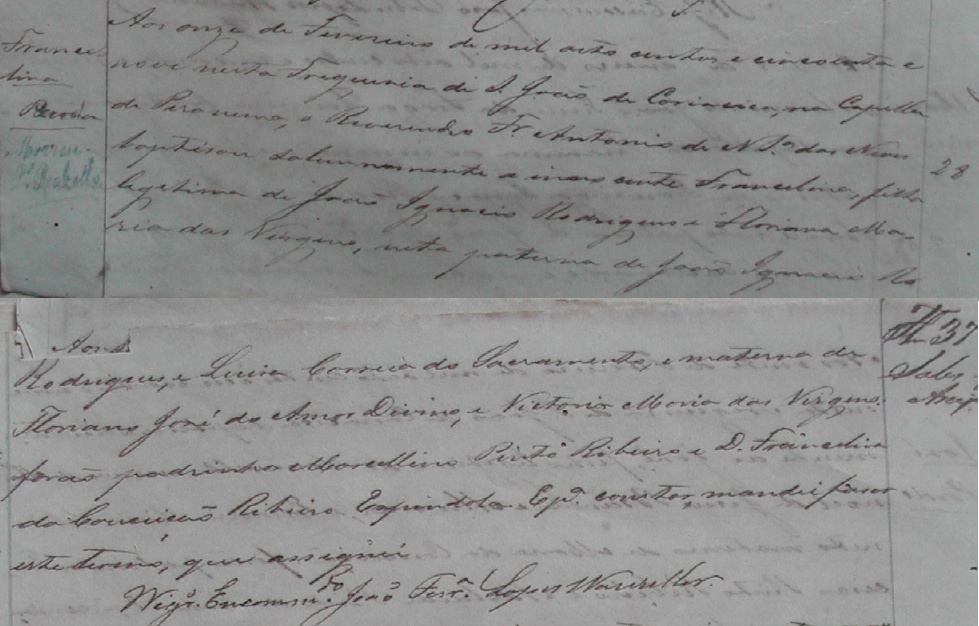 Aos onze de Fevereiro de mil oito centos e cincoenta e
nove nesta Freguesia de S. João de Cariacica, na Capella
de Piranema, o Reverendo Fr Antonio de N.ª das Neves
baptisou solemnemente a innocente Francelina, filha
legitima de João Ignacio Rodrigues e Floriana Ma-
ria das Virgens, neta paterna de João Ignacio Ro
Franci-
lina
28
Aos
Rodrigues, e Luiza Correia do Sacramento, e materna de
Floriano José do Amor Divino, e Victoria Maria das Virgens.
forão padrinhos Marcellino Pinto Ribeiro e D. Francelina
da Conceição Ribeiro Espindola E p.ª constar mandei fazer
este termo, que assignei
Vigr.º Encomm.do João Ferr.ª Lopes